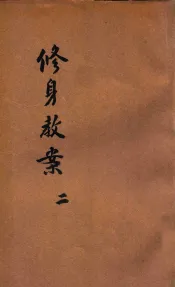 修身教案 二